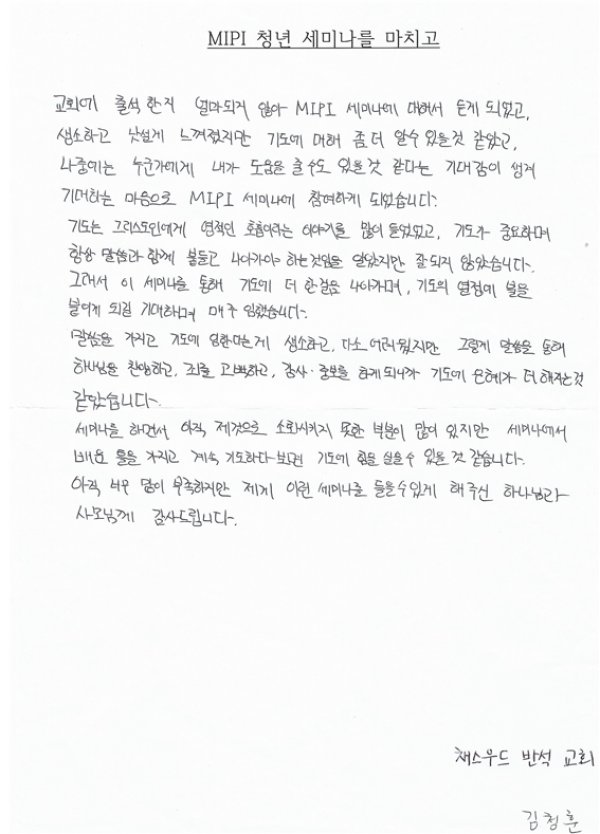 MIPI 청년 세미나를 마치고
교회에 출석한지 얼마되지 않아 MIPI 세미나에 대해서 듣게 되었고,
생소하고 낯설게 느껴졌지만 기도에 대해 좀 더 알수 있을것 같았고,
나중에는 누군가에게 내가 도움을 줄수도 있을것 같다는 기대감이 생겨
기대하는 마음으로 MIPI 세미나에 참여하게 되었습니다.
기도는 그리스도인에게 영적인 호흡이라는 이야기를 많이 들었었고, 기도가 중요하며
항상 말씀과 함께 붙들고 나아가야 하는것임을 알았지만 잘 되지 않았습니다.
그래서 이 세미나를 통해 기도에 더 한걸음 나아가며, 기도의 열정에 불을
붙이게 되길 기대하며 매주 임했습니다.
말씀을 가지고 기도에 임한다는게 생소하고, 다소 어려웠지만 그렇게 말씀을 통해
하나님을 찬양하고, 죄를 고백하고, 감사·중보를 하게 되니까 기도에 은혜가 더 해지는것
같았습니다.
세미나를 하면서 아직 제것으로 소화시키지 못한 부분이 많이 있지만 세미나에서
배운 틀을 가지고 계속 기도하다보면 기도에 힘을 실을수 있을것 같습니다.
아직 너무 많이 부족하지만 제게 이런 세미나를 들을수있게 해주신 하나님과
사모님께 감사드립니다.
채스우드 반석 교회
김청훈